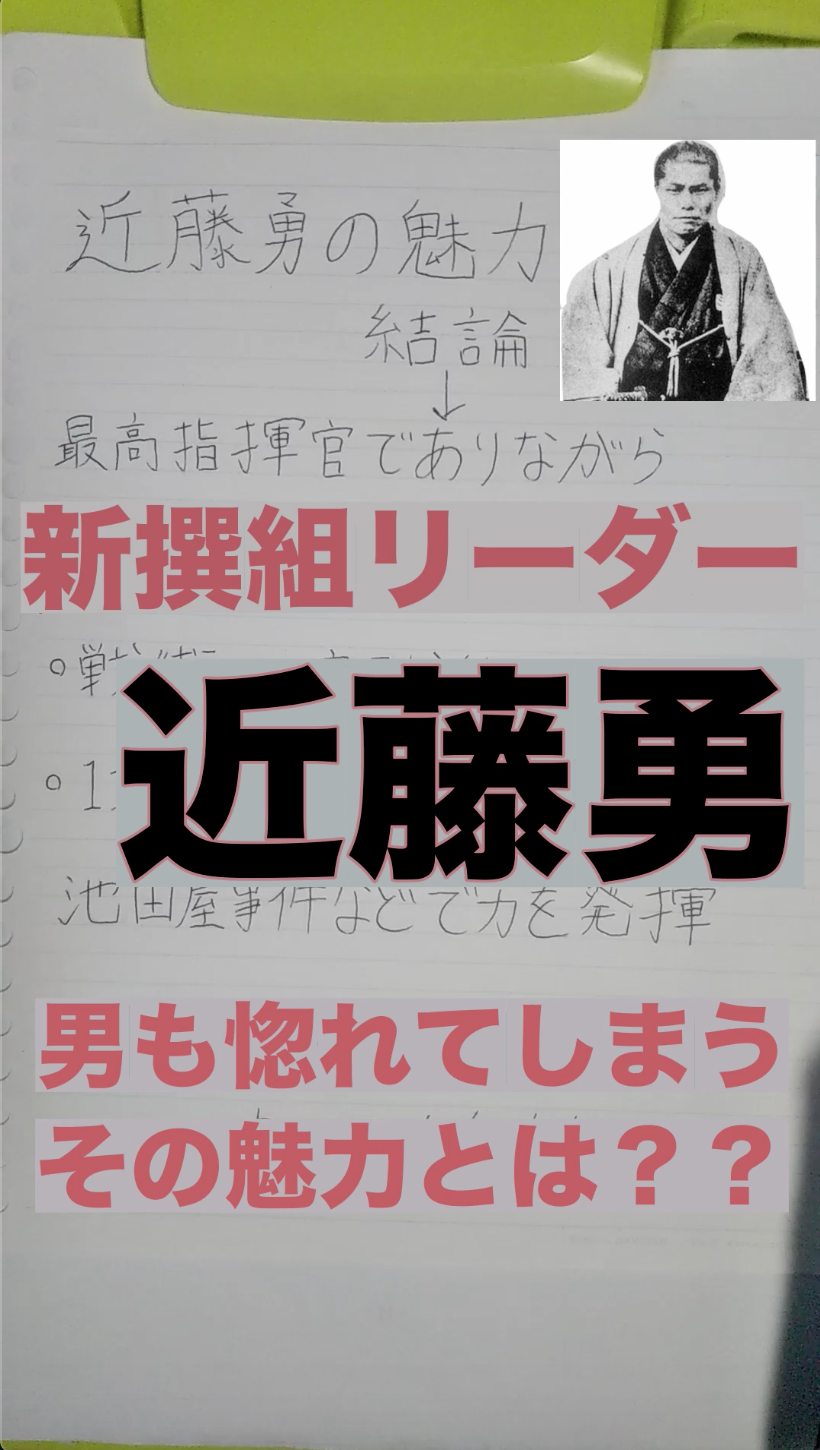 近藤勇の魅力
結論
↓
最高指揮官でありながら
新撰組リーダー
近藤勇
池田屋事件などで力を発揮
男も惚れてしまう
その魅力とは？？